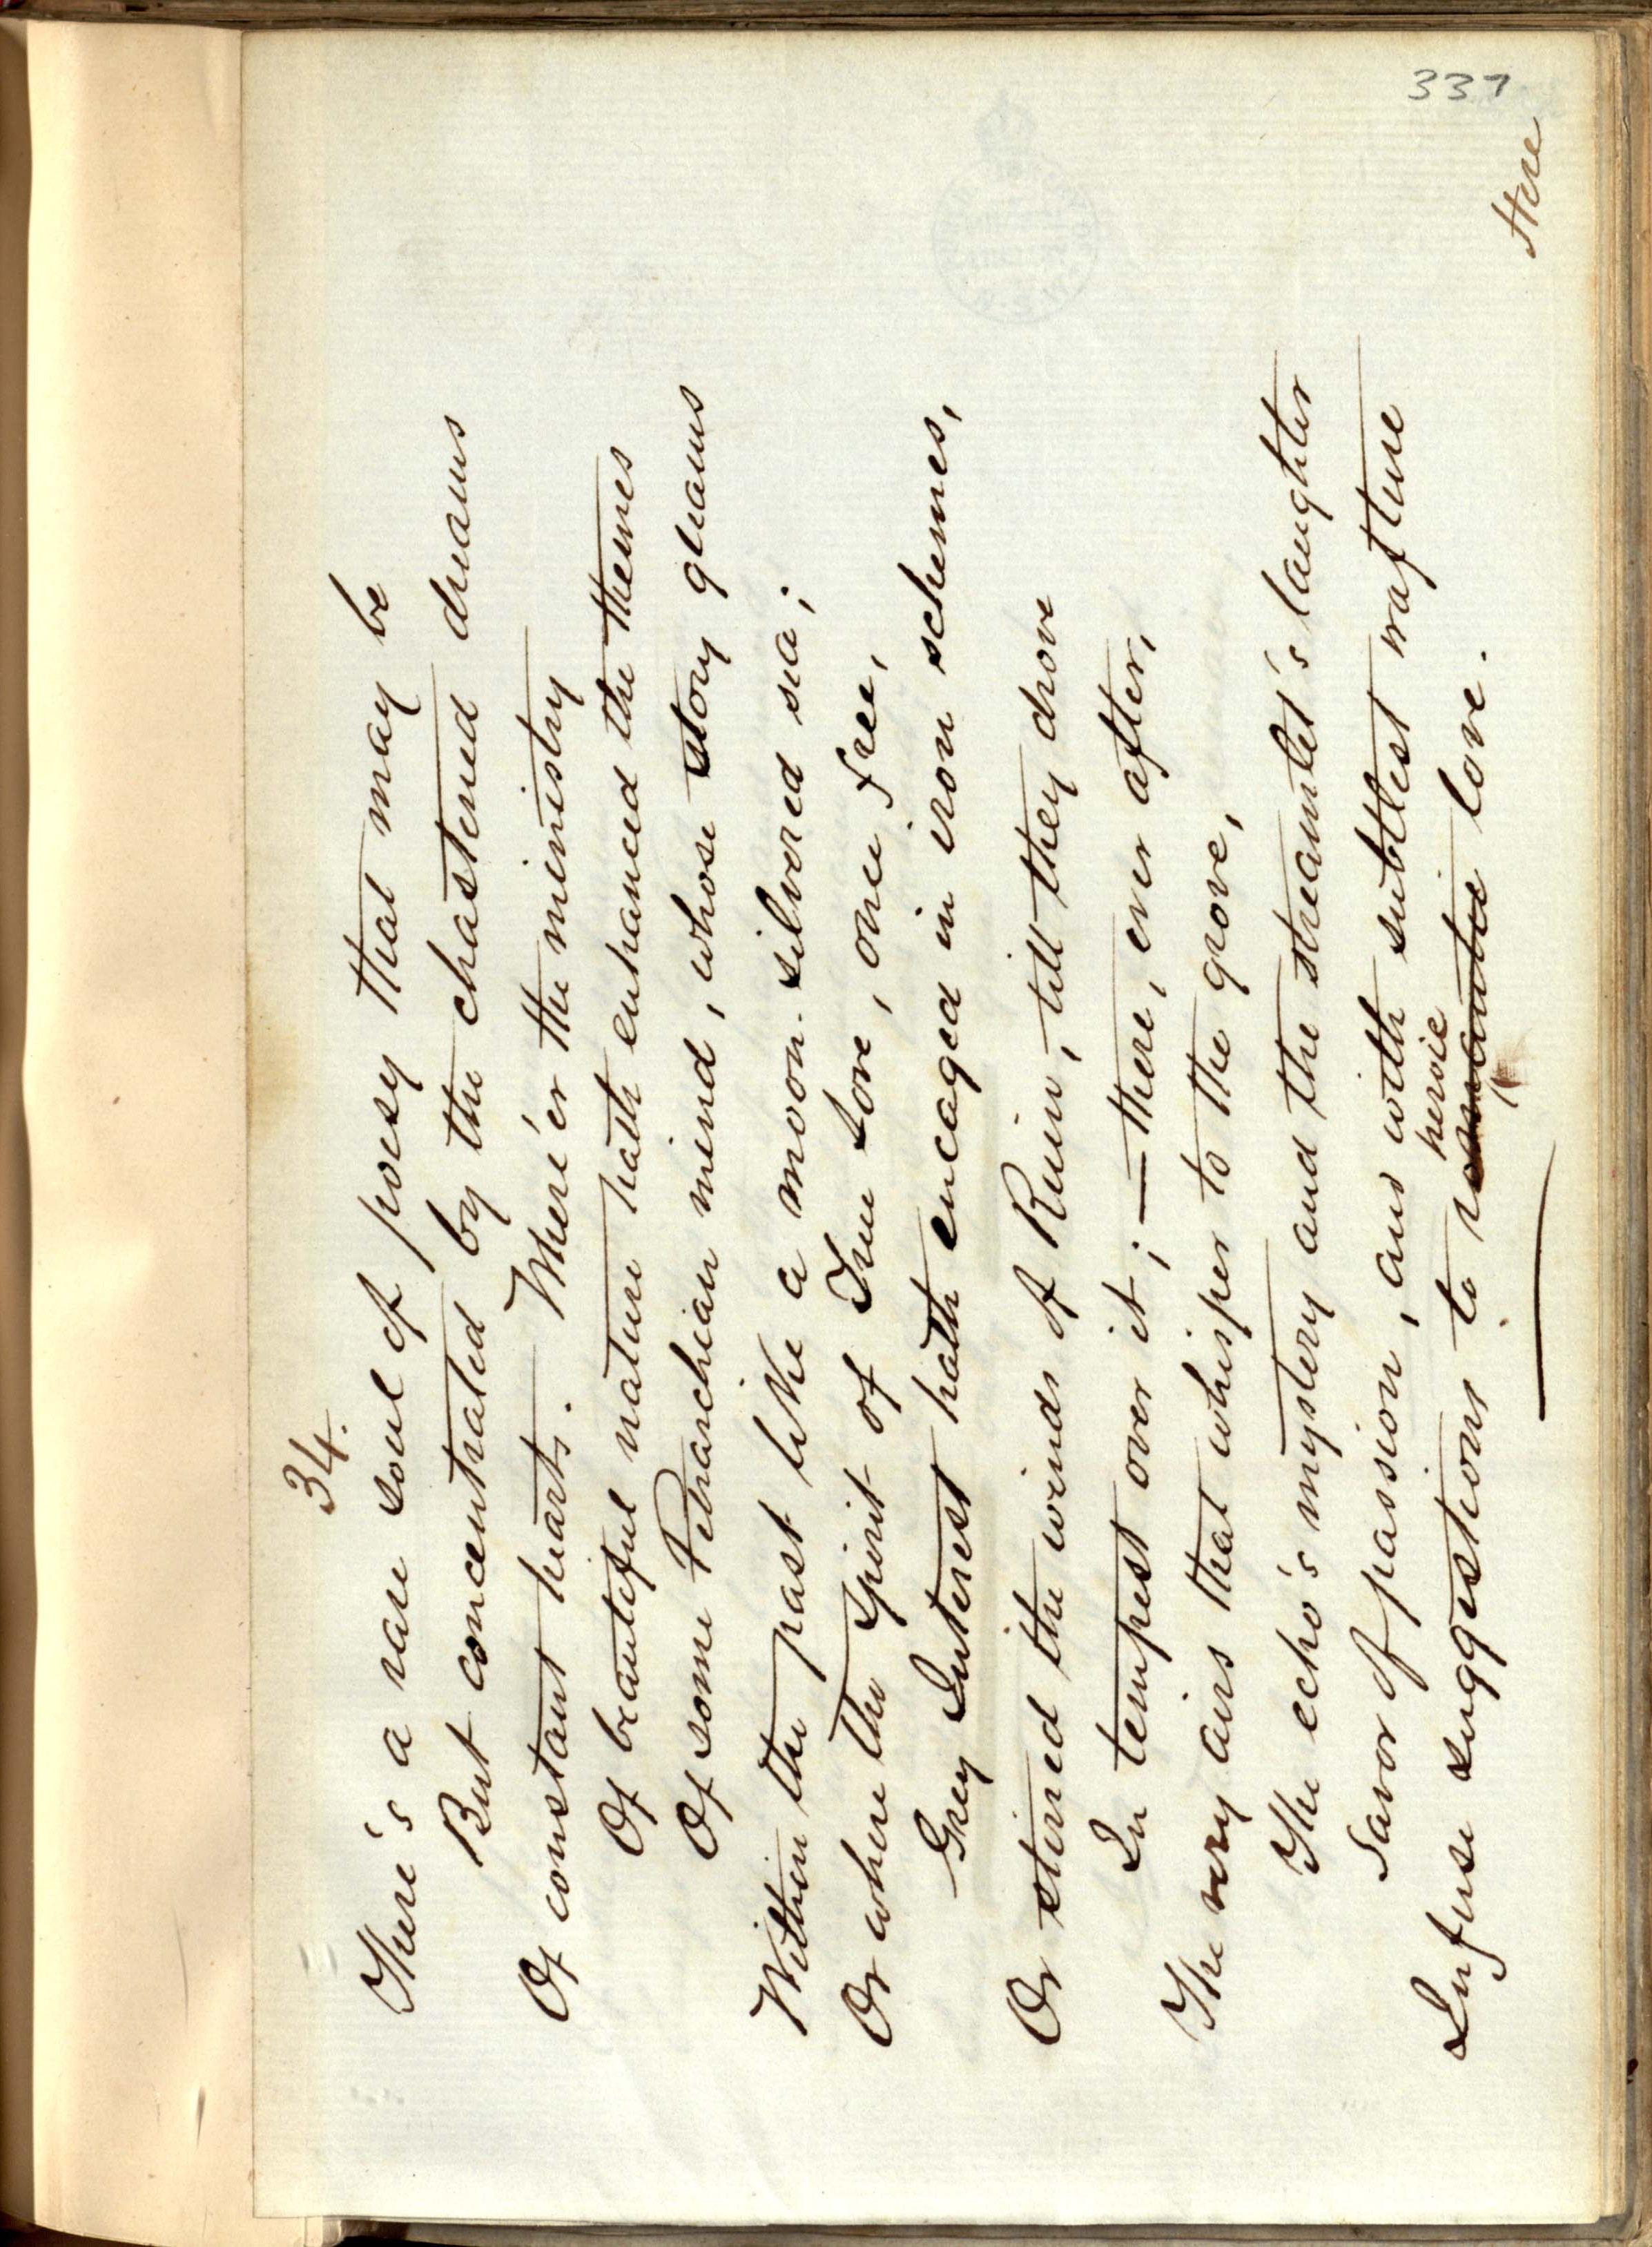 337
34.
There's a rare soul of poesy that may be
But concentrated by the chastened dreams
Of constant hearts. Where'er the ministry
Of beautiful nature hath enhanced the themes
Of some Petrarchian mind, whose story gleams
Within the past like a moon-silvered sea;
Or where the Spirit of True Love, once free,
Grey Interest hath encaged in iron schemes,
Or stirred the winds of Ruin, till they drove
In tempest over it; — there, ever after,
The very airs that whisper to the grove,
The echo's mystery and the streamlet's laughter
Savor of passion, and with subtlest wafture
heroic
Infuse suggestions to romantic love.
Here